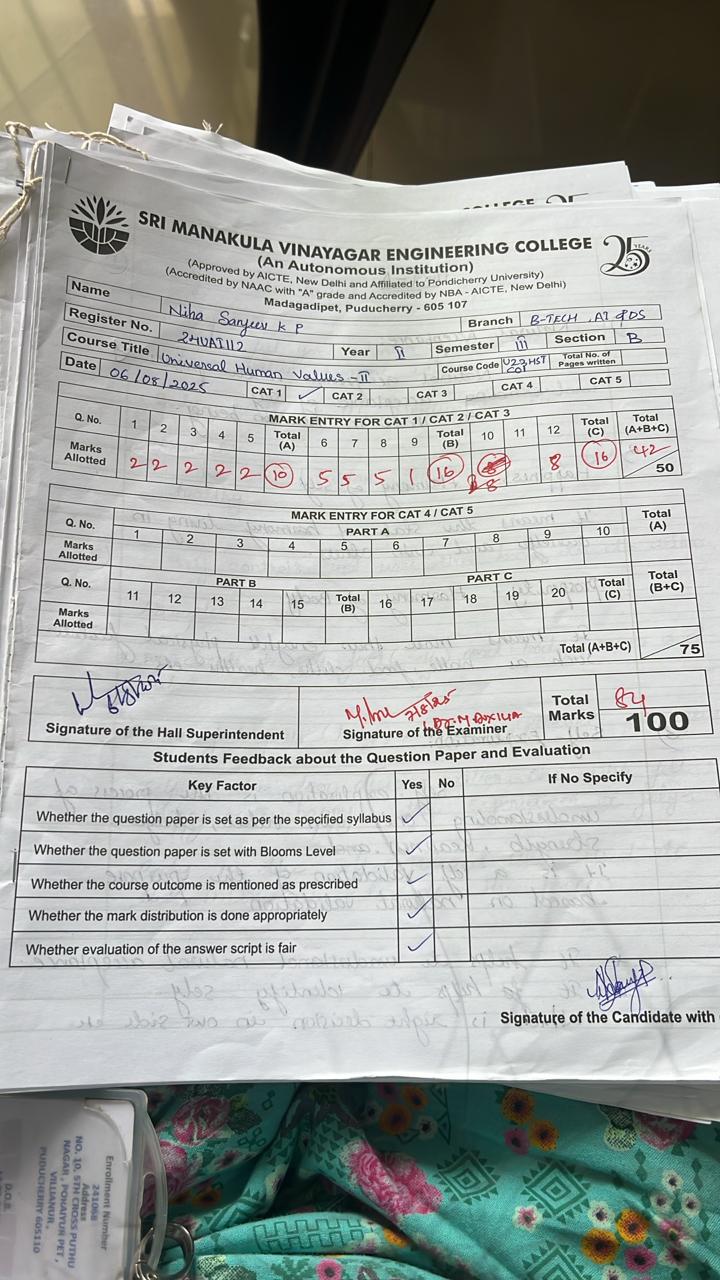 SRI MANAKULA VINAYAGAR ENGINEERING COLLEGE
25 YEARS
(An Autonomous Institution)
(Approved by AICTE, New Delhi and Affiliated to Pondicherry University)
(Accredited by NAAC with "A" grade and Accredited by NBA - AICTE, New Delhi)
Madagadipet, Puducherry - 605 107
Name Niha Sanjeev K P Branch B-TECH, AI & DS
Register No. 24UAI112 Year II Semester III Section B
Course Title Universal Human Values -II Course Code U23HST C01 Total No. of Pages written
Date 06/08/2025 CAT 1 ✓ CAT 2 CAT 3 CAT 4 CAT 5
MARK ENTRY FOR CAT 1 / CAT 2 / CAT 3
Q. No. 1 2 3 4 5 Total (A) 6 7 8 9 Total (B) 10 11 12 Total (C) Total (A+B+C)
Marks Allotted 2 2 2 2 2 10 5 5 5 1 16 8 8 16 42
50
MARK ENTRY FOR CAT 4 / CAT 5
PART A
Q. No. 1 2 3 4 5 6 7 8 9 10 Total (A)
Marks Allotted
PART B PART C
Q. No. 11 12 13 14 15 Total (B) 16 17 18 19 20 Total (C) Total (B+C)
Marks Allotted
Total (A+B+C) 75
6/8/2025
7/8/25
Signature of the Hall Superintendent Signature of the Examiner Total Marks 84 100
Students Feedback about the Question Paper and Evaluation
Key Factor Yes No If No Specify
Whether the question paper is set as per the specified syllabus ✓
Whether the question paper is set with Blooms Level ✓
Whether the course outcome is mentioned as prescribed ✓
Whether the mark distribution is done appropriately ✓
Whether evaluation of the answer script is fair ✓
Signature of the Candidate with
Enrollment Number
241068
Address
NO. 10, 5TH CROSS PUTHU
NAGAR, POHAIYUR PET,
VILLIANUR,
PUDUCHERRY 605110
D.O.B.